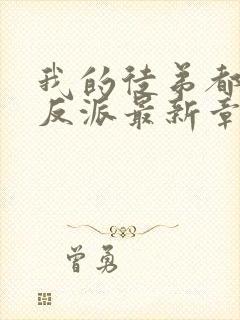 我的徒弟都
反派最新章
曾勇